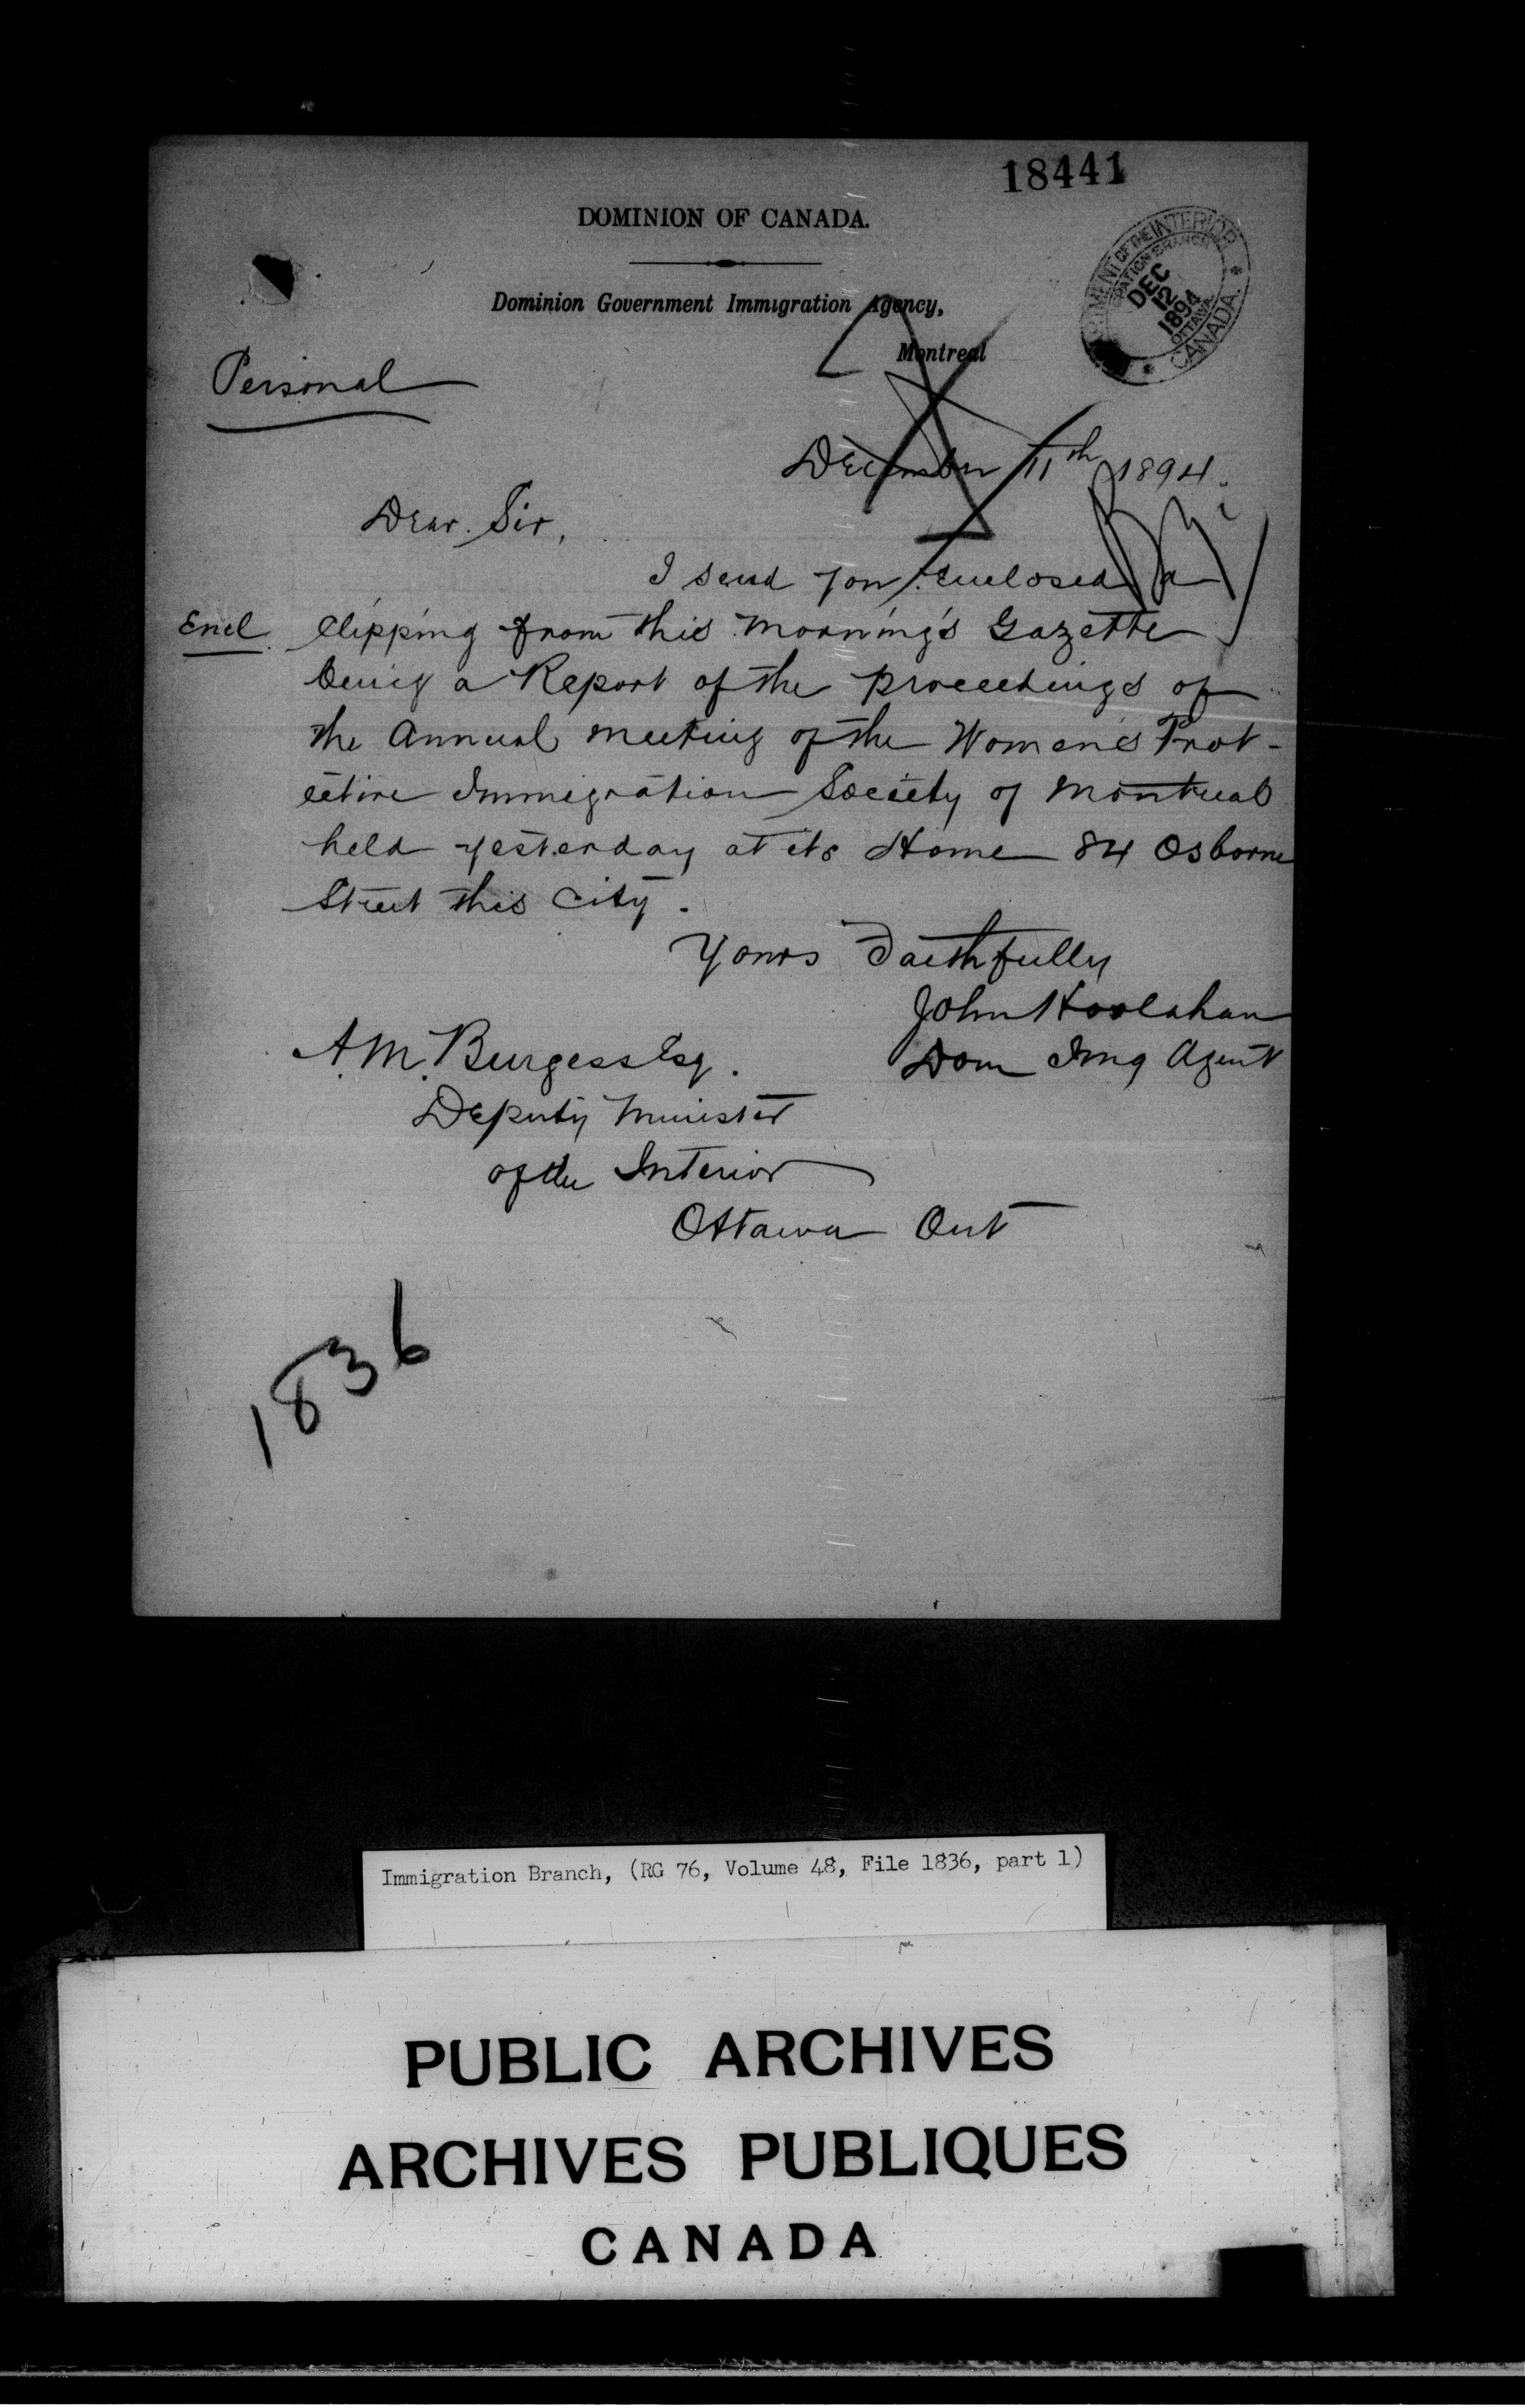 18441
DOMINION OF CANADA.
Dominion Government Immigration Agency,
Montreal
DEPARTMENT OF THE INTERIOR
IMMIGRATION BRANCH
DEC
12
1894
OTTAWA
CANADA.
Personal
December 11th 1894.
Dear Sir,
I send you enclosed a
Encl. Clipping from this Morning's Gazette
being a Report of the proceedings of
the Annual meeting of the Women's Prot-
ective Immigration Society of Montreal
held yesterday at its Home 84 Osborne
Street this City.
Yours Faithfully
John Hoolahan
Dom Img Agent
A.M. Burgess Esq.
Deputy Minister
of the Interior
Ottawa Ont
1836
Immigration Branch, (RG 76, Volume 48, File 1836, part 1)
PUBLIC ARCHIVES
ARCHIVES PUBLIQUES
CANADA